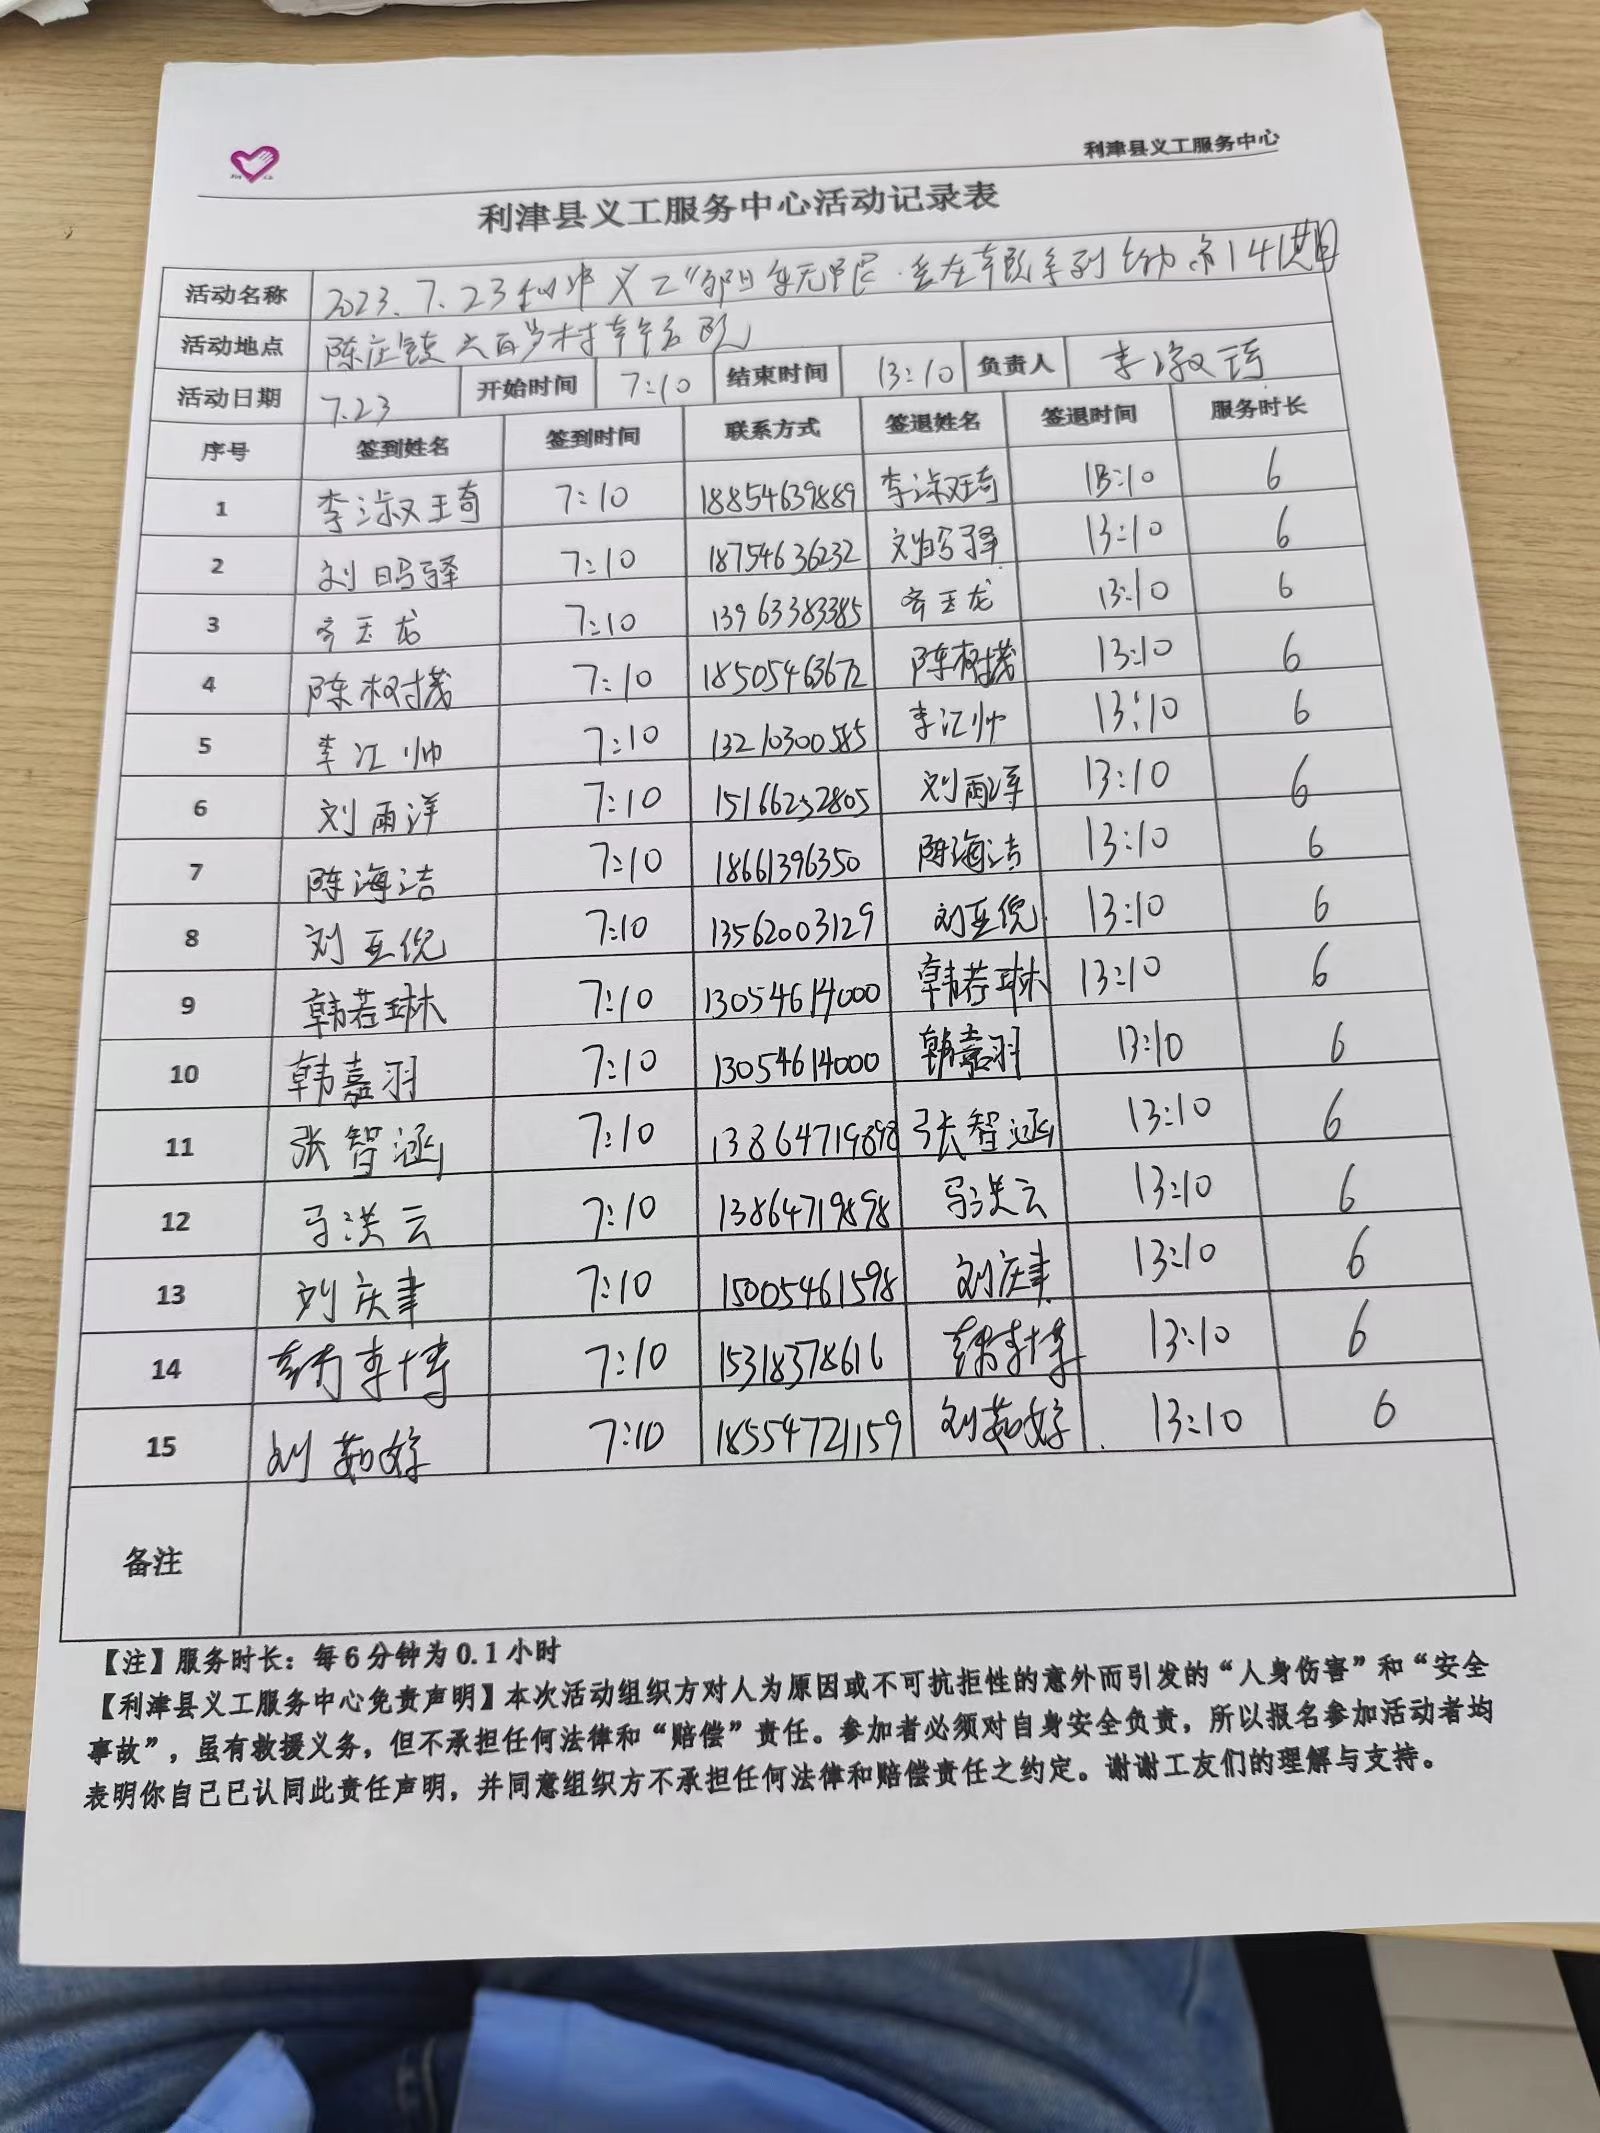 利津县义工服务中心
利津县义工服务中心活动记录表
活动名称 2023.7.23利津义工“夕阳无限·爱在幸院系列活动第141期
活动地点 陈庄镇六百步村幸福院
活动日期 7.23 开始时间 7:10 结束时间 13:10 负责人 李淑琦
序号 签到姓名 签到时间 联系方式 签退姓名 签退时间 服务时长
1 李淑琦 7:10 18854639889 李淑琦 13:10 6
2 刘明驿 7:10 18754636232 刘明驿 13:10 6
3 齐玉龙 7:10 13963383385 齐玉龙 13:10 6
4 陈树茂 7:10 18505463672 陈树茂 13:10 6
5 李江帅 7:10 13210300585 李江帅 13:10 6
6 刘雨洋 7:10 15166232805 刘雨洋 13:10 6
7 陈海洁 7:10 18661396350 陈海洁 13:10 6
8 刘亚倪 7:10 13562003129 刘亚倪 13:10 6
9 韩若琳 7:10 13054614000 韩若琳 13:10 6
10 韩嘉羽 7:10 13054614000 韩嘉羽 13:10 6
11 张智涵 7:10 13864719898 张智涵 13:10 6
12 马洪云 7:10 13864719898 马洪云 13:10 6
13 刘庆聿 7:10 15005461598 刘庆聿 13:10 6
14 7:10 15318378616 13:10 6
15 刘茹婷 7:10 18554721159 刘茹婷 13:10 6
备注
【注】服务时长：每6分钟为0.1小时
【利津县义工服务中心免责声明】本次活动组织方对人为原因或不可抗拒性的意外而引发的“人身伤害”和“安全
事故”，虽有救援义务，但不承担任何法律和“赔偿”责任。参加者必须对自身安全负责，所以报名参加活动者均
表明你自己已认同此责任声明，并同意组织方不承担任何法律和赔偿责任之约定。谢谢工友们的理解与支持。